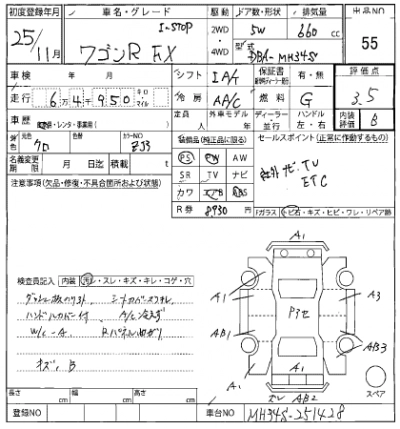 初度登録年月 車名・グレード 駆動 ドア数・形状 排気量 出品NO
25/11月 ワゴンR FX I-STOP 2WD・4WD 5W 660cc 55
型式 DBA-MH34S
車検 年 月 シフト IAT 保証書 有・無 評価点
走行 6万4千950 キロ・マイル 冷房 AAC 燃料 G 3.5
車歴 自家用・レンタ・事業用( ) 定員 人 外車モデル 年車 ディーラー・並行 ハンドル 左・右 内装評価 B
色 元色 クロ カラーNO ZJ3 装備品(純正品に限る) セールスポイント(正常に作動するもの)
名義変更期限 月 日迄 積載 t PS PW AW
注意事項(欠品・修復・不具合箇所及び状態) SR TV ナビ 社外ナビ. TV
カワ エアB ABS ETC
R券 8930円
Fガラス トビ石・キズ・ヒビ・ワレ・リペア跡
A1
検査員記入 内装 汚レ・スレ・キズ・キレ・コゲ・穴
A1 A3
ハンドルカバー付
P3セ
W/C-A
AB1 AB3
キズ、B
A1 A1
AB2
スペア
長さ cm 幅 cm 高さ cm
登録NO 車台NO MH34S-251428